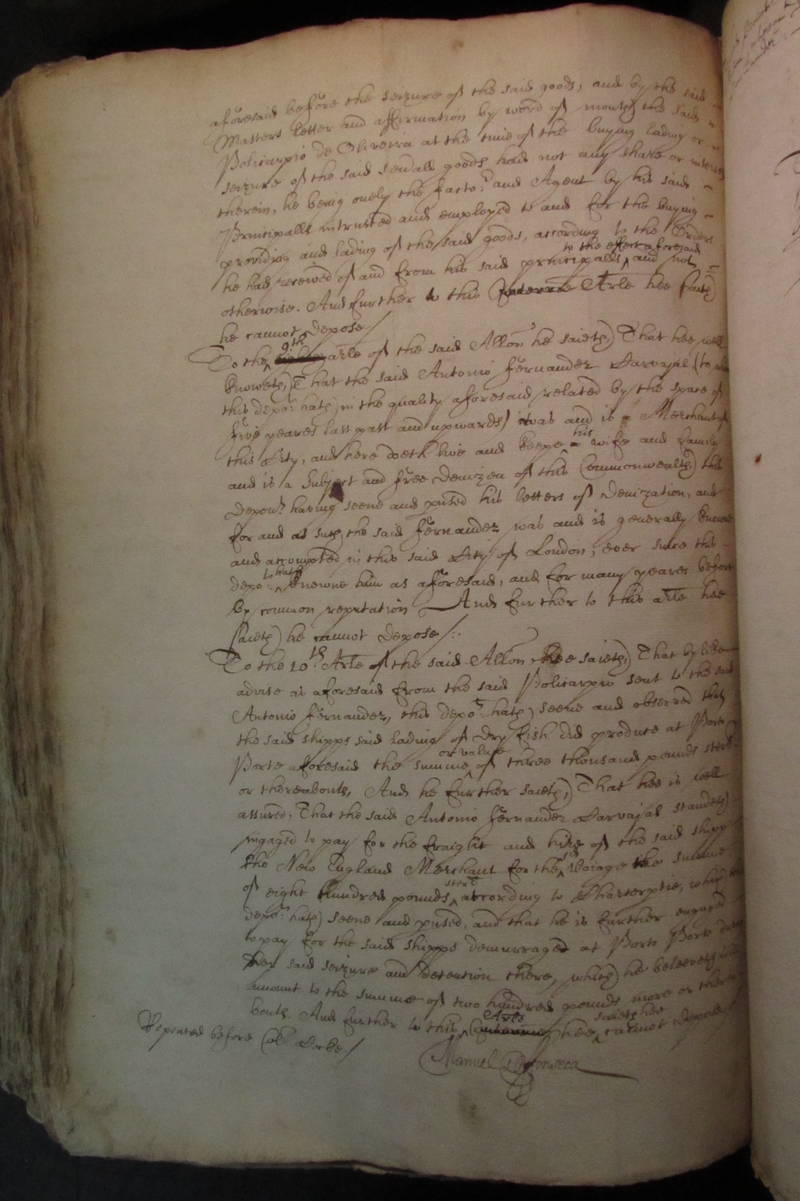 aforesaid before the seizure of the said goods, and by the said
Masters letter and affirmation by word of mouth the said
Policarpio de Oliveira at the time of the buying lading or
seizure of the said sendall goods had not any share or interest
therein, he being onely the Facto:r and Agent by his said
Principalls intrusted and employed to and for the buying
providing and lading of the said goods, according to the Orders
he had received of and from his said principalls ^to the effect aforesaid and not
otherwise. And further to this Arle hee saith
he cannot depose /
To the ^9th arle of the said Allon he saieth, That hee well
knoweth, That the said Antonio Fernandez Carvajal (to whom
this depo:t hath in the quality aforesaid related by the space of
five yeares last past and upwards) was and is a Merchant of
this Citty, and here doeth live and keepe ^his wife and family
and is a Subject and free Denizen of this Commonwealth, this
depon:t having seene and perused his letters of Denization, and
for and as such the said Fernandez was and is generally knowne
and accompted in this said Citty of London, ever since this
depo:t ^hath knowne him as aforesaid, and for many yeares before
by common reputation And further to this arle hee
saieth he cannot depose /:.
To the 10th Arle of the said Allon hee saieth, That by letter
advise as aforesaid from the said Policarpio sent to the said
Antonio Fernandez, this depo:t hath seene and observed that
the said shipps said lading of dry fish did produce at Porto
Porte aforesaid the summe ^or value of three thousand pounds sterl
or thereabouts, And he further saieth, That hee is well
assured, That the said Antonio Fernandez Carvajal standeth
engaged to pay for the fraight and hire of the said shipp
the New England Merchant for the ^sd Voiage the summe
of eight hundred pounds ^sterl according to Charterptie, which this
depo:t hath seene and perused, and that he is further engaged
to pay for the said shipps demurrage at Porto Porto
her said seizure and detention there, which he beleeveth
amount to the summe of two hundred pounds more or therea
bouts. And further to this ^Arle hee ^saieth hee cannot depose
Repeated before Col: Cocke. /
Manuel Dafonseca